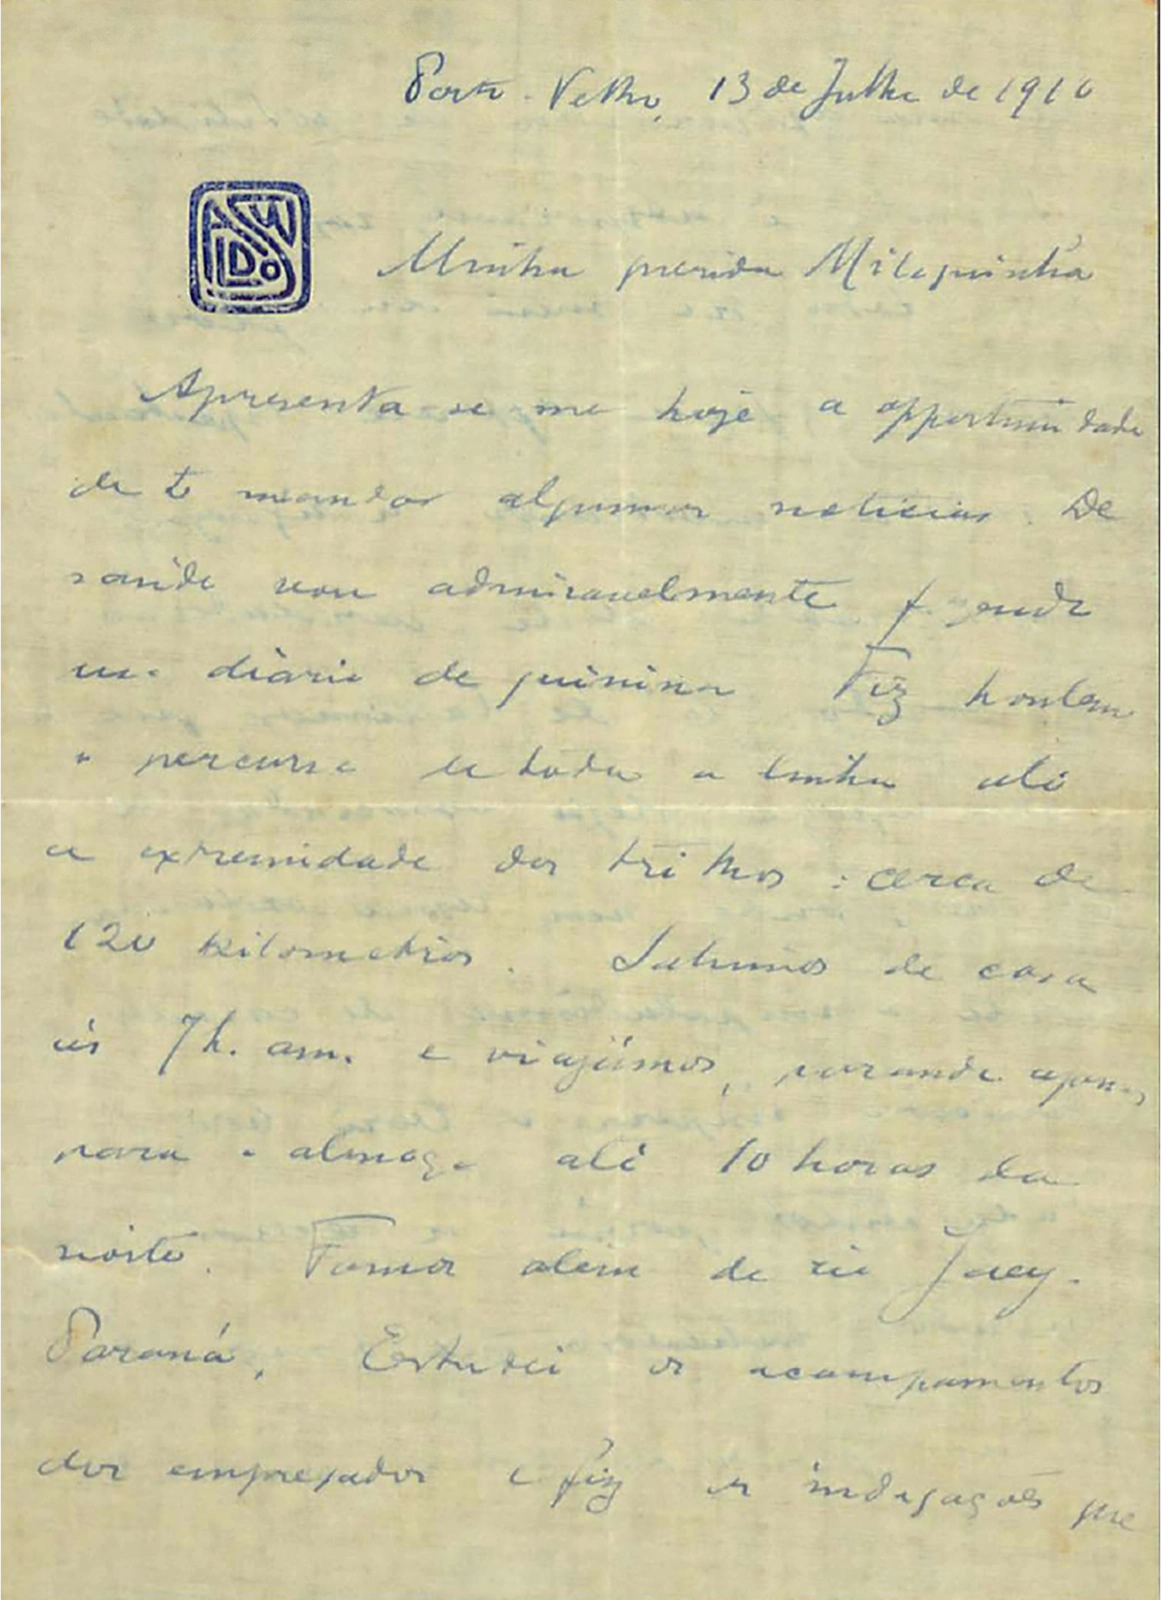 Porto-Velho, 13 de Julho de 1910
OSWALDO
Minha querida Miloquinha
Apresenta-se me hoje a opportunidade
de te mandar algumas noticias. De
saude vou admiravelmente fazendo
uso diario de quinina Fiz hontem
o percurso de toda a linha até
a extremidade dos trilhos: cerca de
120 kilometros. Sahimos de casa
ás 7 h. am. e viajámos, parando apenas
para o almoço até 10 horas da
noite. Fomos alem do rio Jacy-
Paraná, Estudei os acampamentos
dos empregados e fiz as indagações que